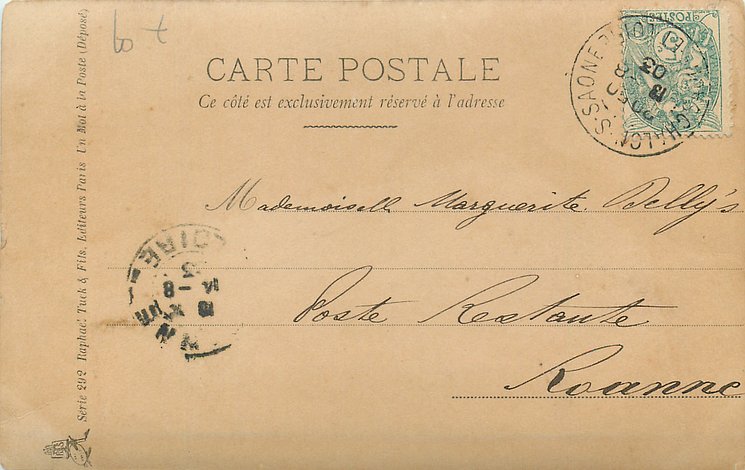 CARTE POSTALE
Ce côté est exclusivement réservé à l'adresse
POSTES
CHALON-S-SAONE
8
03
Mademoiselle Marguerite
Poste Restante
Roanne
LOIRE
8
Série 292 Raphael Tuck & Fils, Editeurs Paris Un Mot à la Poste (Déposé)